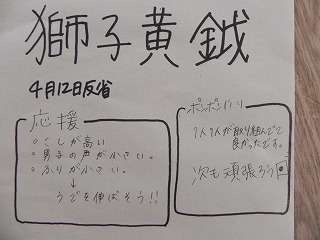 獅子黄鉞
4月12日反省
応援
○こしが高い
○男子の声が小さい。
○ふりが小さい。
↓
うでを伸ばそう!!
ポンポン作り
1人1人が取り組んでて
良かったです。
次も頑張ろう